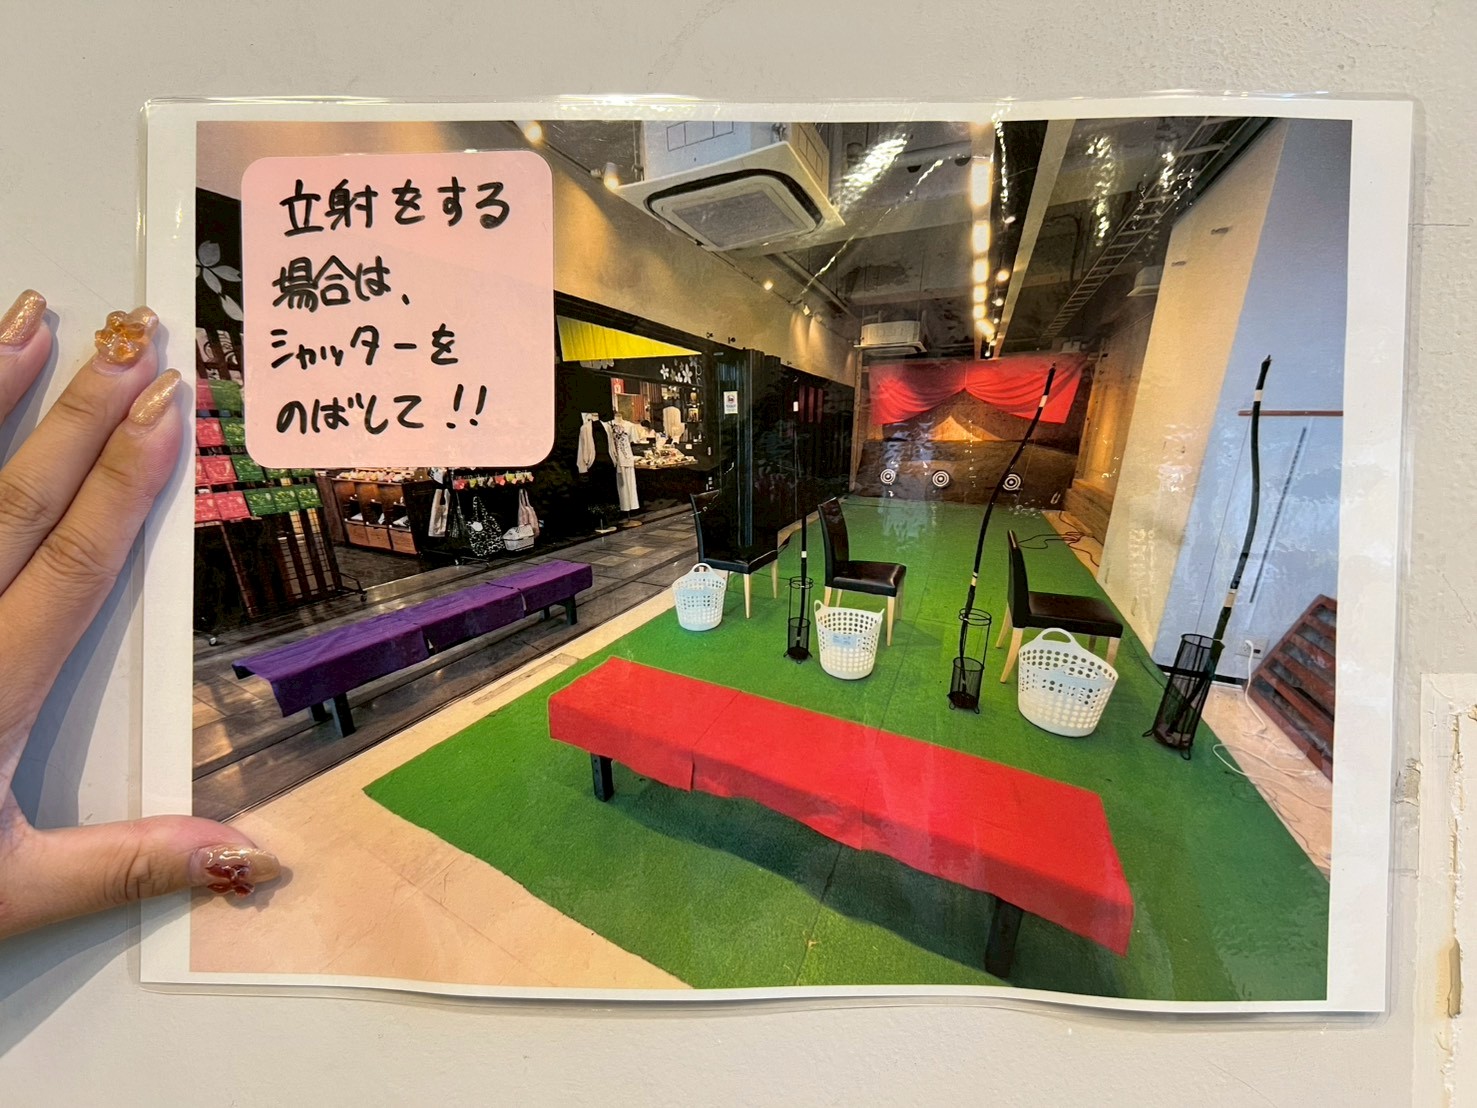 立射をする
場合は、
シャッターを
のばして!!